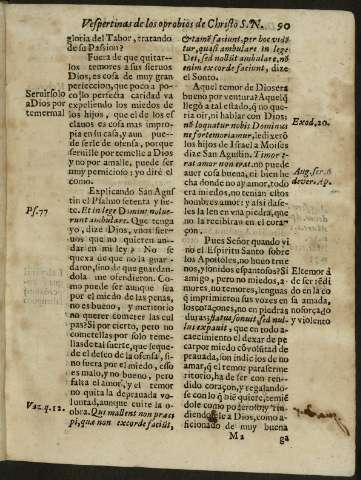 Vespertinas de los oprobios de Christo S.N. 90
gloria del Tabor, tratando
de su Passion?
Fuera de que quitar-
les temores a sus sieruos
Dios, es cosa de muy gran
perfeccion, que poca, o po-
co perfeta caridad va
expeliendo los miedos de
los hijos, que el de los es
clauos es cosa mas impro
pia en su casa, y aun pue-
de serle de ofensa, porque
seruille por temelle a Dios
y no por amalle, puede ser
muy pernicioso: yo diré el
como.
Explicando San Agus
tin el Psalmo setenta y sie-
te. Et in lege Domini nolue-
runt ambulare. Que tenga
yo, dize Dios, vnos sier-
uos que no quieren an-
dar en mi ley? No se
quexa de que no la guar-
daron, sino de que guardan-
dola me ofendieron. Co-
mo puede ser aunque sea
por el miedo de las penas,
no es bueno, y meritorio
no querer cometer las cul
pas? Si por cierto, pero no
cometellas por solo temer-
llas de tal suerte, que se que-
de el deseo de la ofensa, si
no fuera por el miedo, esso
es malo, y no bueno, pero
falta el amor, y el temor
no quita la deprauada vo-
luntad, aunque euite la o-
bra. Qui mallent non præci
pi, quæ non ex corde faciũt,
Seruir solo
a Dios por
temer mal
Ps. 77
Vaz. q. 12.
& tamẽ faciunt, per hoc vidẽ
tur, quasi ambulare in lege
Dei, sed noluit ambulare, nõ
enim ex corde faciunt, dize
el Santo.
Aquel temor de Dios era
bueno por ventura? Aquel q̃
llegò a tal estado, q̃ no que-
ria oir, ni hablar con Dios:
nõ loquatur nobis Dominus
ne forte moriamur, le dixerõ
los hijos de Israel a Moises
dize San Agustin. Timor e-
rat amor non erat, nò puede
auer cosa buena, ni bien he
cha donde no ay amor, todo
era miedos, no tenían estos
hombres amor: y assi das-
les la ley en vna piedra, que
no la recibiran en el cora-
çon.
Pues Señor quando vi
no el Espiritu Santo sobre
los Apostoles, no huuo true
nos, y sonidos espantosos? Si
amigo, pero no miedos, a-
mores, no temores, lenguas
q̃ imprimieron sus vozes en
los coraçones, no en piedras
duras; factus sonus, sed nul-
lus expauit, que en todo a-
caecimiento el dexar de pe
car por miedo cõ volũtad de
prauada, son indicios de no
amar, que el temor para ser me
ritorio, ha de ser con ren-
dido coraçon, y regalando-
se con lo q̃ Dios quiere, temiẽ
dole como poderoso, y rin-
diendosele a Dios, como a-
ficionado de muy buena
M 2 ga
Exod. 20.
Aug. ser. 6
de ver. Ap.
El temor à
de ser rẽdi
do en la cõ
sa amada,
no forçado
y violento